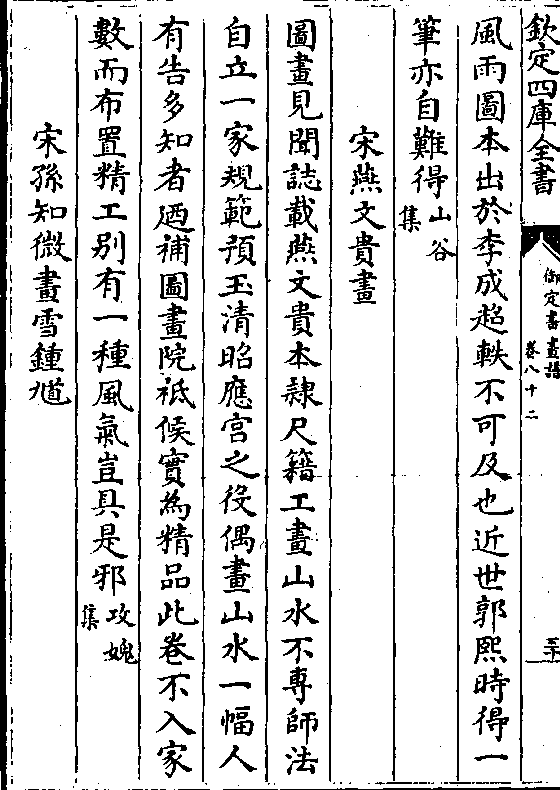 欽定四庫全書
御定書畫譜
卷八十二
風雨圖本出於李成超軼不可及也近世郭熙時得一
筆亦自難得山谷集
宋燕文貴畫
圖畫見聞誌載燕文貴本隷尺籍工畫山水不專師法
自立一家規範預玉清昭應宫之役偶畫山水一幅人
有告多知者廼補圖畫院祗候實為精品此卷不入家
數而布置精工别有一種風氣豈具是邪攻媿集
宋孫知微畫雪鍾馗